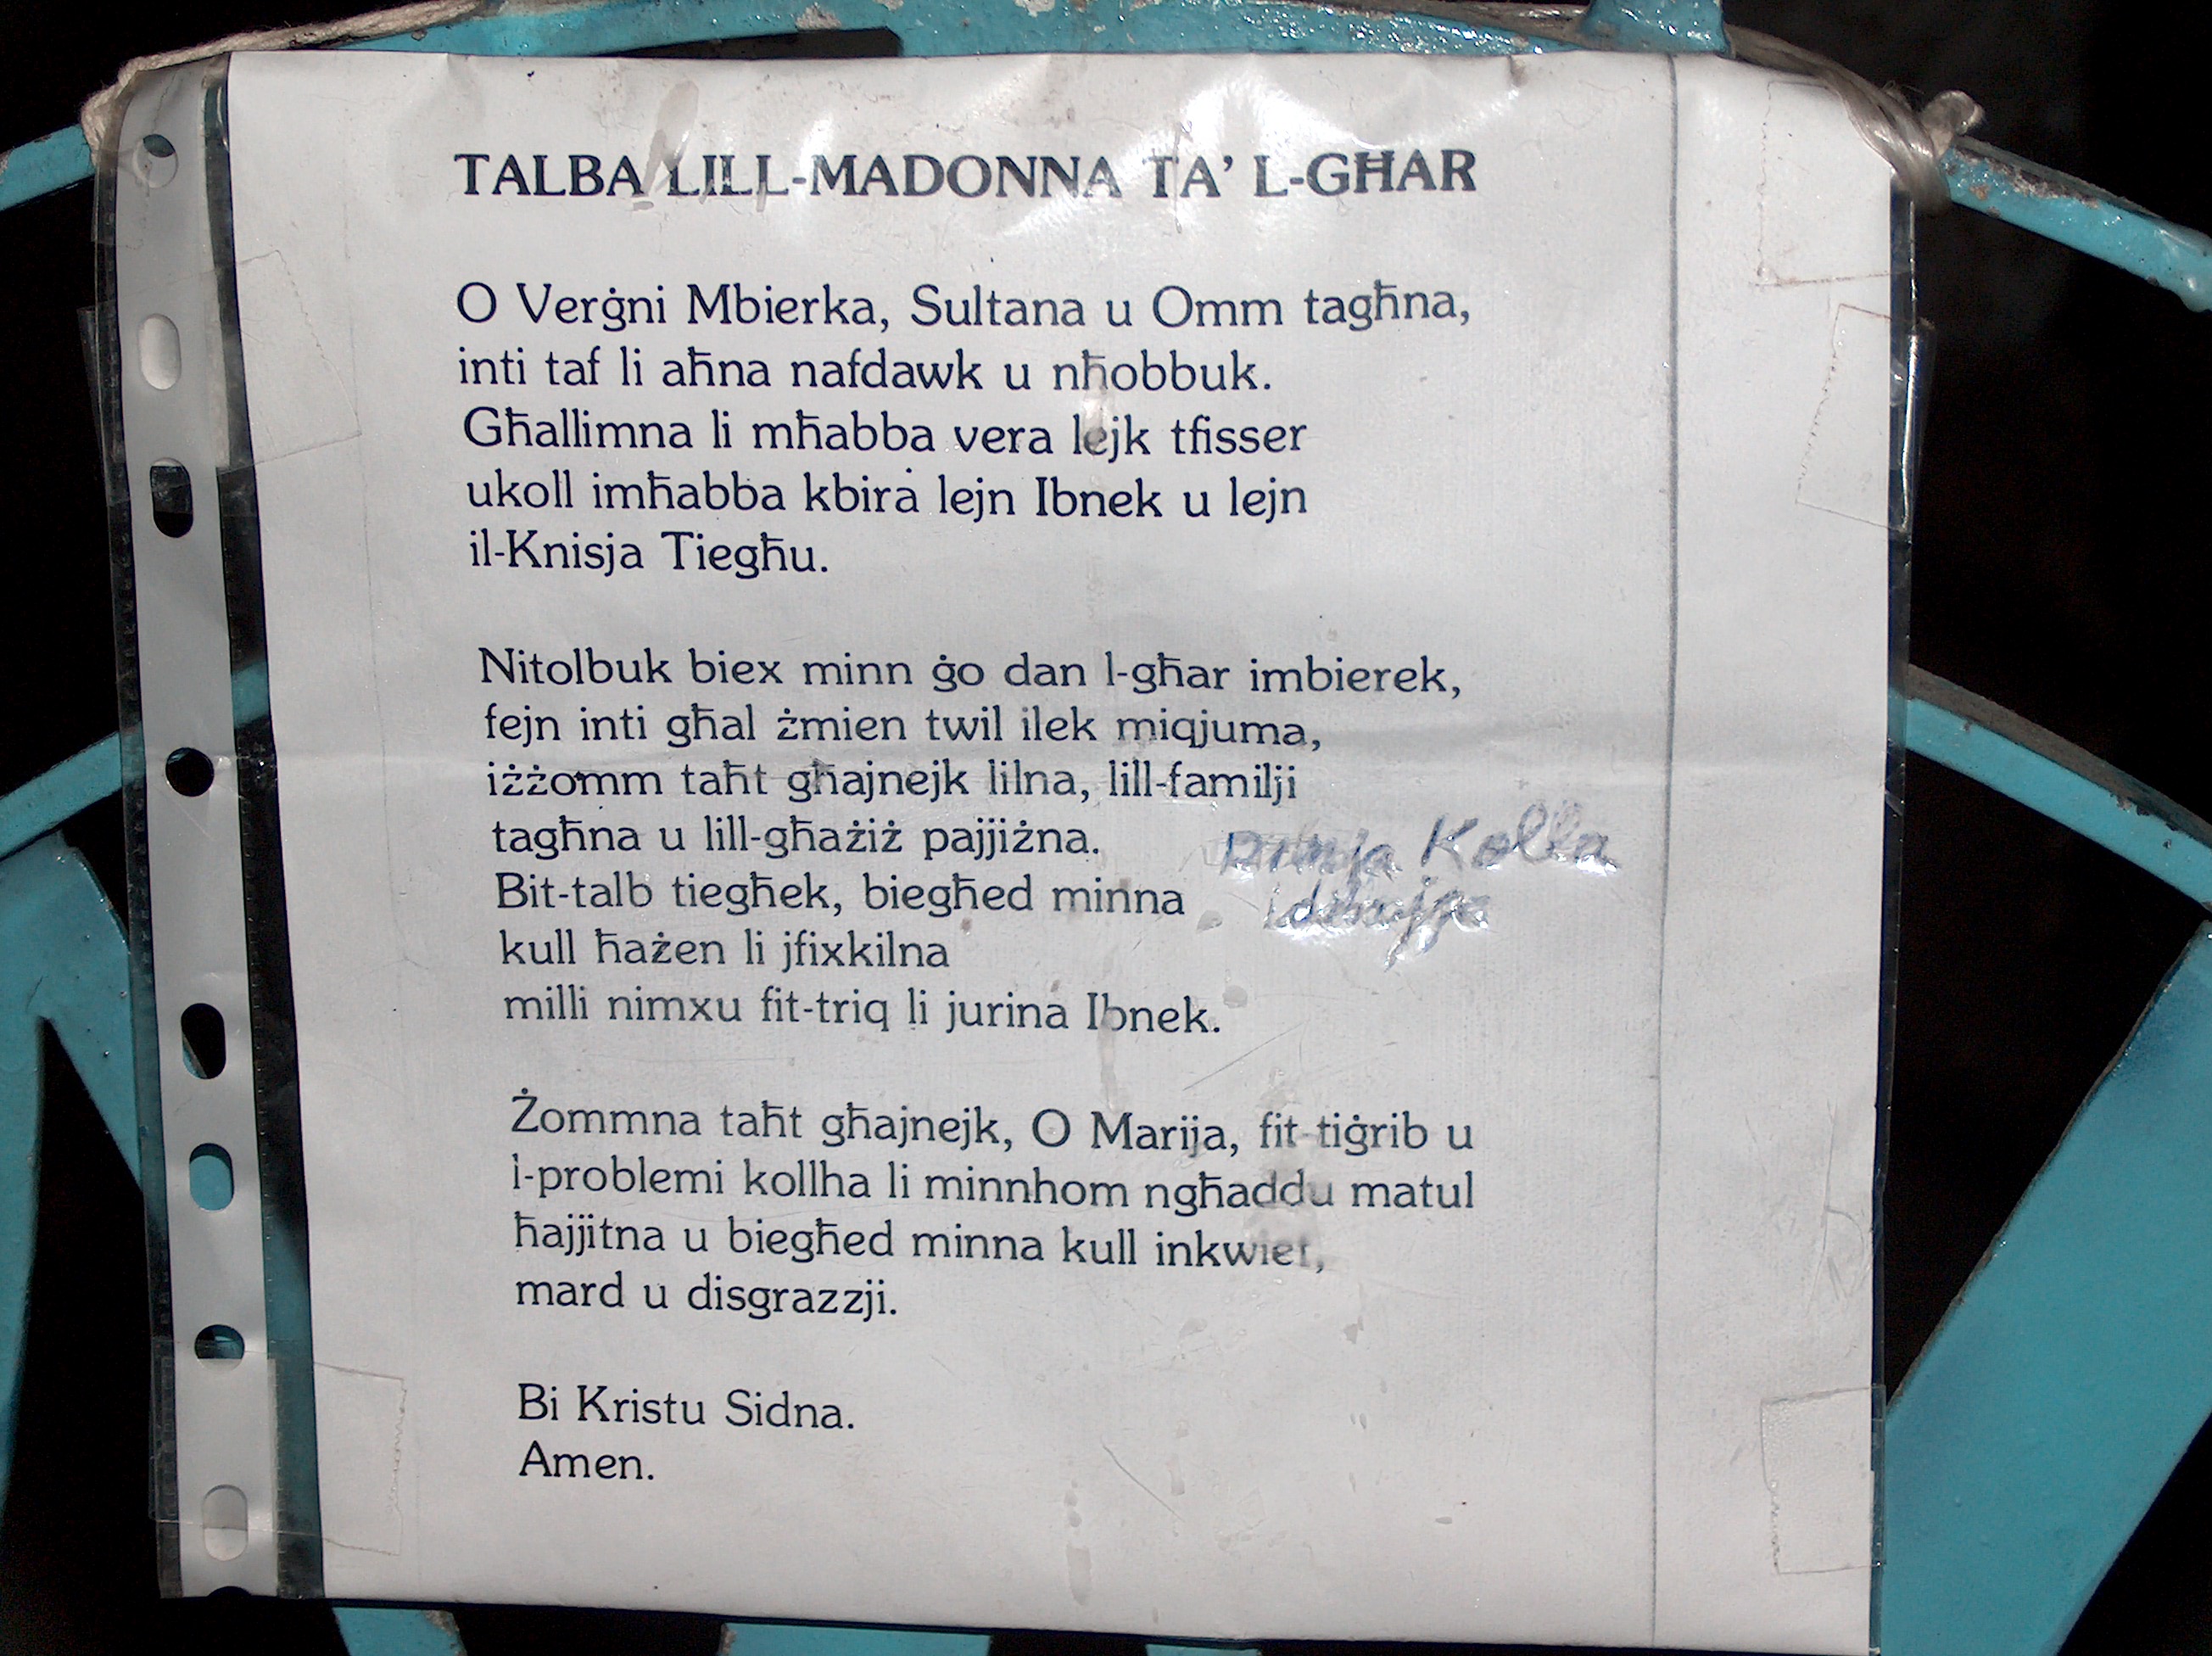 TALBA LILL-MADONNA TA' L-GĦAR
O Verġni Mbierka, Sultana u Omm tagħna,
inti taf li aħna nafdawk u nħobbuk.
Għallimna li mħabba vera lejk tfisser
ukoll imħabba kbira lejn Ibnek u lejn
il-Knisja Tiegħu.
Nitolbuk biex minn ġo dan l-għar imbierek,
fejn inti għal żmien twil ilek miqjuma,
iżżomm taħt għajnejk lilna, lill-familji
tagħna u lill-għażiż pajjiżna.
Kolla
Bit-talb tiegħek, biegħed minna
kull ħażen li jfixkilna
milli nimxu fit-triq li jurina Ibnek.
Żommna taħt għajnejk, O Marija, fit-tiġrib u
l-problemi kollha li minnhom ngħaddu matul
ħajjitna u biegħed minna kull inkwiet,
mard u disgrazzji.
Bi Kristu Sidna.
Amen.